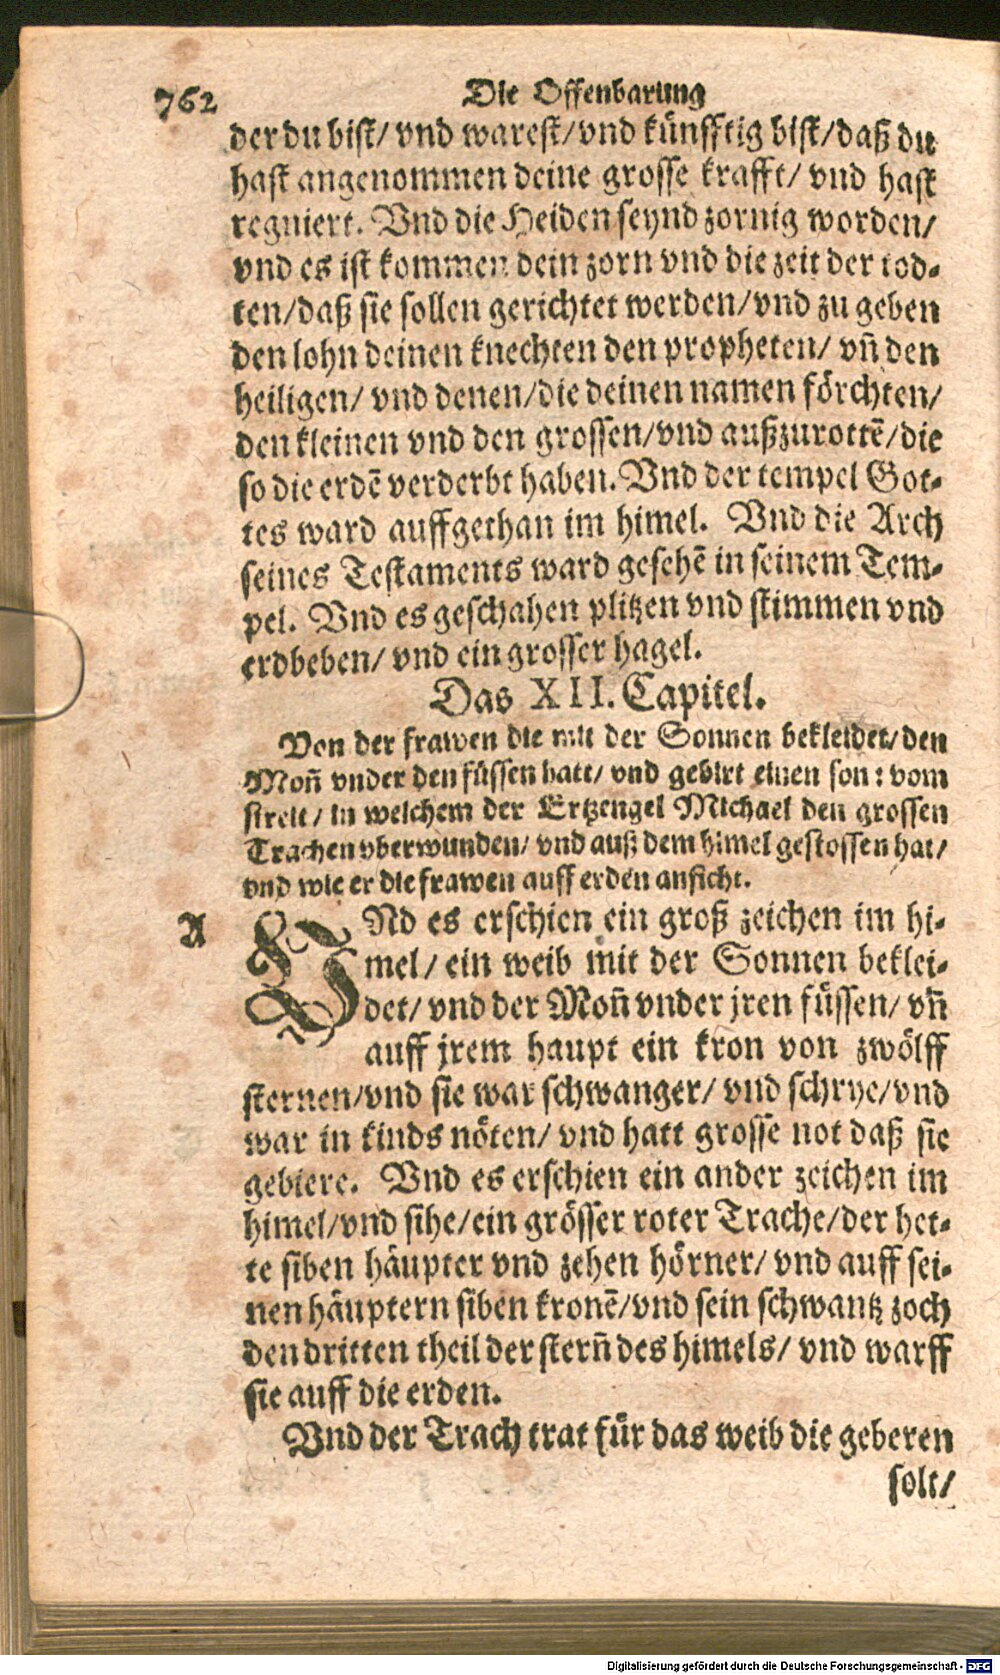 762 Die Offenbarung
der du bist/ vnd warest/ vnd künfftig bist/ daß du
hast angenommen deine grosse krafft/ vnd hast
regniert. Vnd die Heiden seynd zornig worden/
vnd es ist kommen dein zorn vnd die zeit der tod-
ten/ daß sie sollen gerichtet werden/ vnd zu geben
den lohn deinen knechten den propheten/ vñ den
heiligen/ vnd denen/ die deinen namen förchten/
den kleinen vnd den grossen/ vnd außzurottẽ/ die
so die erdẽ verderbt haben. Vnd der tempel Got-
tes ward auffgethan im himel. Vnd die Arch
seines Testaments ward gesehẽ in seinem Tem-
pel. Vnd es geschahen plitzen vnd stimmen vnd
erdbeben/ vnd ein grosser hagel.
Das XII. Capitel.
Von der frawen die mit der Sonnen bekleidet/ den
Moñ vnder den füssen hatt/ vnd gebirt einen son: vom
streit/ in welchem der Ertzengel Michael den grossen
Trachen vberwunden/ vnd auß dem himel gestossen hat/
vnd wie er die frawen auff erden anficht.
A VNd es erschien ein groß zeichen im hi-
mel/ ein weib mit der Sonnen beklei-
det/ vnd der Moñ vnder jren füssen/ vñ
auff jrem haupt ein kron von zwölff
sternen/ vnd sie war schwanger/ vnd schrye/ vnd
war in kinds nöten/ vnd hatt grosse not daß sie
gebiere. Vnd es erschien ein ander zeichen im
himel/ vnd sihe/ ein grösser roter Trache/ der het-
te siben häupter vnd zehen hörner/ vnd auff sei-
nen häuptern siben kronẽ/ vnd sein schwantz zoch
den dritten theil der sterñ des himels/ vnd warff
sie auff die erden.
Vnd der Trach trat für das weib die geberen
solt/
Digitalisierung gefördert durch die Deutsche Forschungsgemeinschaft - DFG